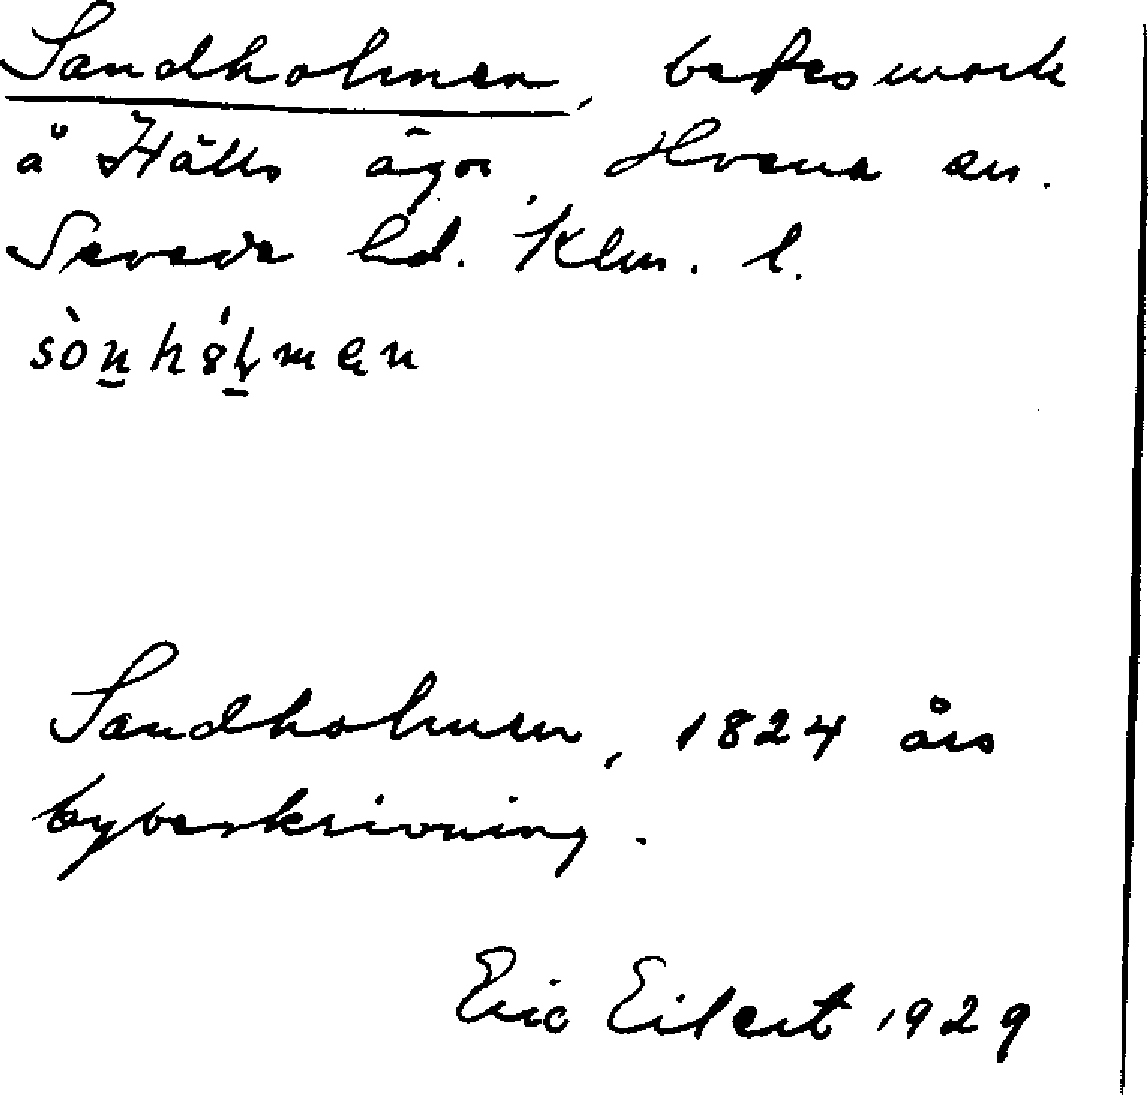 Sandholmen, betesmark
å Hälls ägor, Hvena sn.
Sevede hd. Klm. l.
Sandholmen, 1824 års
bybeskrivning.
Eric Eilert 1929